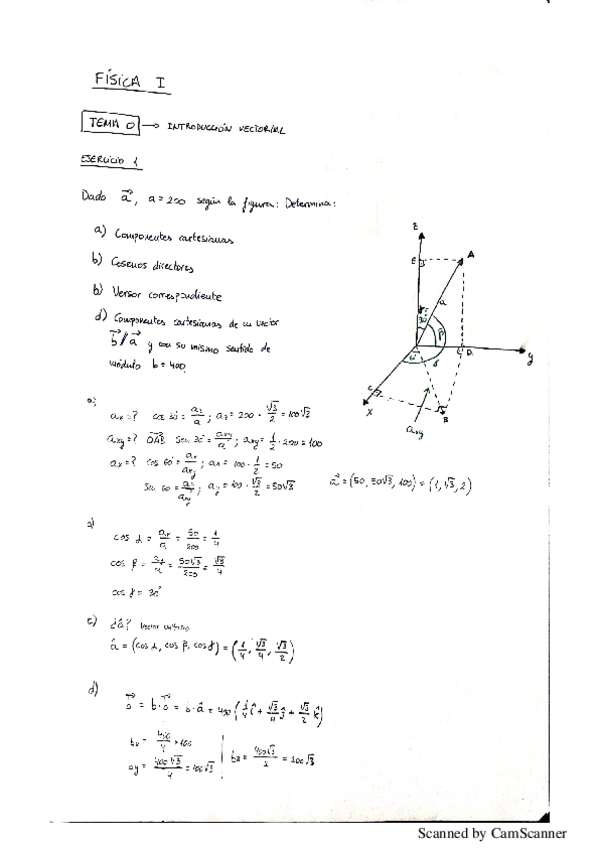 FÍSICA I
TEMA 0 → INTRODUCCIÓN VECTORIAL
EJERCICIO 1
Dado a⃗, a=200 según la figura: Determina:
a) Componentes cartesianas
b) Cosenos directores
b) Versor correspondiente
d) Componentes cartesianas de un vector
b⃗ // a⃗ y con su mismo sentido de
módulo b=400
z
E
A
a
30
β
C
D
y
60
x
B
axy
a)
ax=? cos 30 = az/a ; az = 200 · √3/2 = 100√3
axy=? OAB sen 30 = axy/a ; axy = 1/2 · 200 = 100
ax=? cos 60 = ax/axy ; ax = 100 · 1/2 = 50
sen 60 = ay/axy ; ay = 100 · √3/2 = 50√3
a⃗ = (50, 50√3, 100) = (1, √3, 2)
cos α = ax/a = 50/200 = 1/4
cos β = ay/a = 50√3/200 = √3/4
cos γ = 30°
c) ¿â? Vector unitario
â = (cos α, cos β, cos γ) = (1/4, √3/4, √3/2)
d)
= b · = b · â = 400 (1/4 î + √3/4 ĵ + √3/2 k̂)
bx = 400/4 = 100
ay = 400√3/4 = 100√3
bz = 400√3/2 = 200√3
Scanned by CamScanner